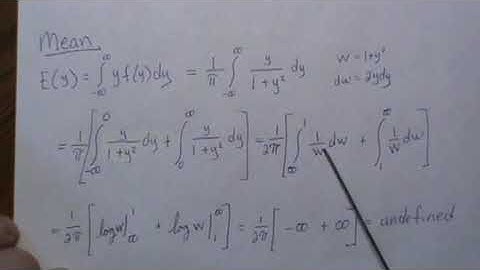 Mean
E(y) = ∫_{-∞}^{∞} y f(y) dy = 1/π ∫_{-∞}^{∞} y/(1+y²) dy w = 1+y²
dw = 2ydy
= 1/π [ ∫_{-∞}^{0} y/(1+y²) dy + ∫_{0}^{∞} y/(1+y²) dy ] = 1/2π [ ∫_{∞}^{1} 1/w dw + ∫_{1}^{∞} 1/w dw ]
= 1/2π [ log w |_{∞}^{1} + log w |_{1}^{∞} ] = 1/2π [ -∞ + ∞ ] = undefined